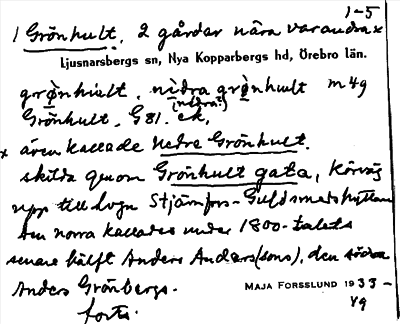 1-5
1 Grönhult, 2 gårdar nära varandra x
Ljusnarsbergs sn, Nya Kopparbergs hd, Örebro län.
grø̀nhult, nìdra grø̀nhult m 49
(nedra?)
Grönhult, G 81. ek,
x även kallade Nedre Grönhult.
skilda genom Grönhult gata, körväg
upp till byn Stjärnfors-Guldsmedshyttan
Den norra kallades under 1800-talets
senare hälft Anders Anders(sons), den södra
Anders Grönbergs.
forts.
MAJA FORSSLUND 1933-
49